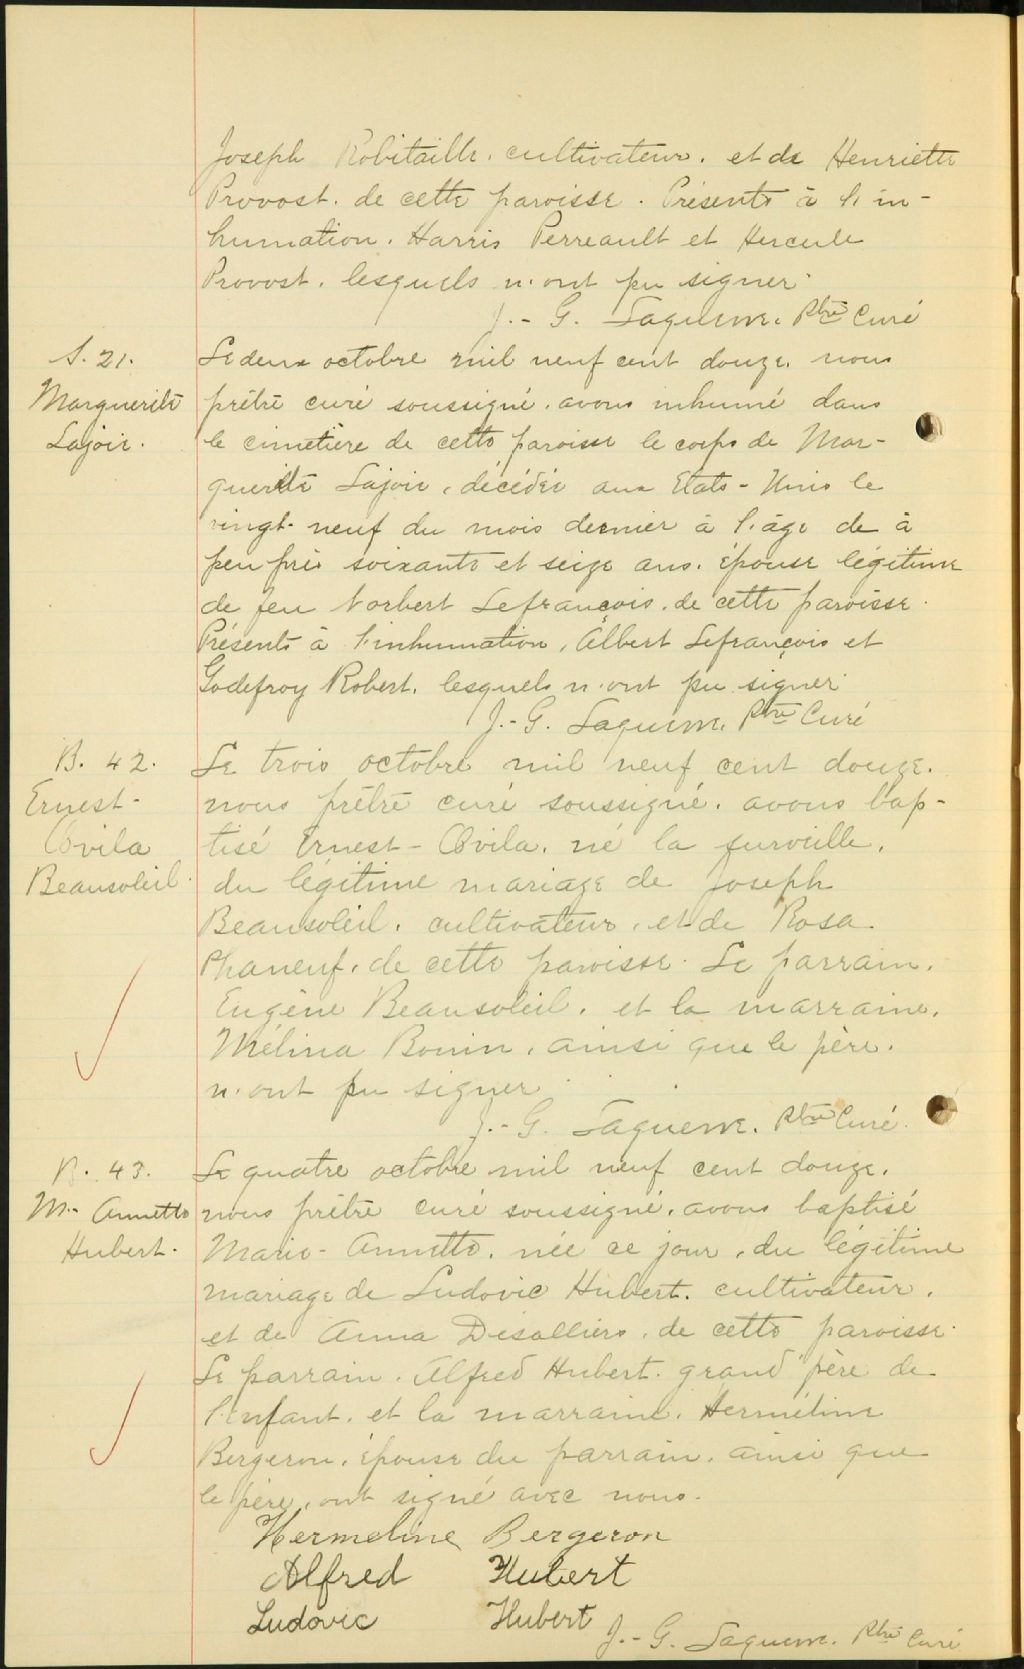 Joseph Robitaille, cultivateur, et de Henriette
Provost, de cette paroisse. Présents à l'in-
humation, Harris Perreault et Hercule
Provost, lesquels n'ont pu signer.
J.-G. Laquerre, Ptre Curé
S. 21.
Marguerite
Lajoie.
Le deux octobre mil neuf cent douze, nous
prêtre curé soussigné, avons inhumé dans
le cimetière de cette paroisse le corps de Mar-
guerite Lajoie, décédée aux Etats-Unis le
vingt-neuf du mois dernier à l'âge de à
peu près soixante et seize ans, épouse légitime
de feu Norbert Lefrançois, de cette paroisse.
Présents à l'inhumation, Albert Lefrançois et
Godefroy Robert, lesquels n'ont pu signer.
J.-G. Laquerre, Ptre Curé
B. 42.
Ernest-
Ovila
Beausoleil.
Le trois octobre mil neuf cent douze,
nous prêtre curé soussigné, avons bap-
tisé Ernest-Ovila, né la surveille,
du légitime mariage de Joseph
Beausoleil, cultivateur, et de Rosa
Phaneuf, de cette paroisse. Le parrain,
Eugène Beausoleil, et la marraine,
Mélina Bonin, ainsi que le père,
n'ont pu signer.
J.-G. Laquerre, Ptre Curé.
B. 43.
M.-Annette
Hubert.
Le quatre octobre mil neuf cent douze,
nous prêtre curé soussigné, avons baptisé
Marie-Annette, née ce jour, du légitime
mariage de Ludovic Hubert, cultivateur,
et de Anna Desalliers, de cette paroisse.
Le parrain, Alfred Hubert, grand père de
l'enfant, et la marraine, Herméline
Bergeron, épouse du parrain, ainsi que
le père, ont signé avec nous.
Hermeline Bergeron
Alfred Hubert
Ludovic Hubert
J.-G. Laquerre, Ptre Curé